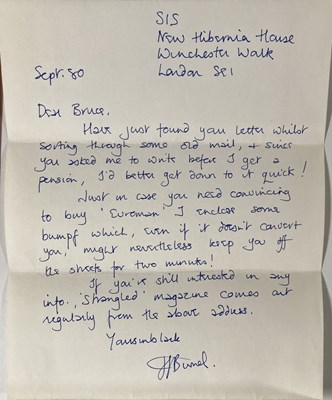 SIS
New Hibernia House
Winchester Walk
London SE1
Sept. 80
Dear Bruce,
Have just found your letter whilst
sorting through some old mail, & since
you asked me to write before I get a
pension, I'd better get down to it quick!
Just in case you need convincing
to buy 'Euroman' I enclose some
bumpf which, even if it doesn't convert
you, might nevertheless keep you off
the streets for two minutes!
If you're still interested in any
info., 'Strangled' magazine comes out
regularly from the above address.
Yoursinblack
JJBurnel.